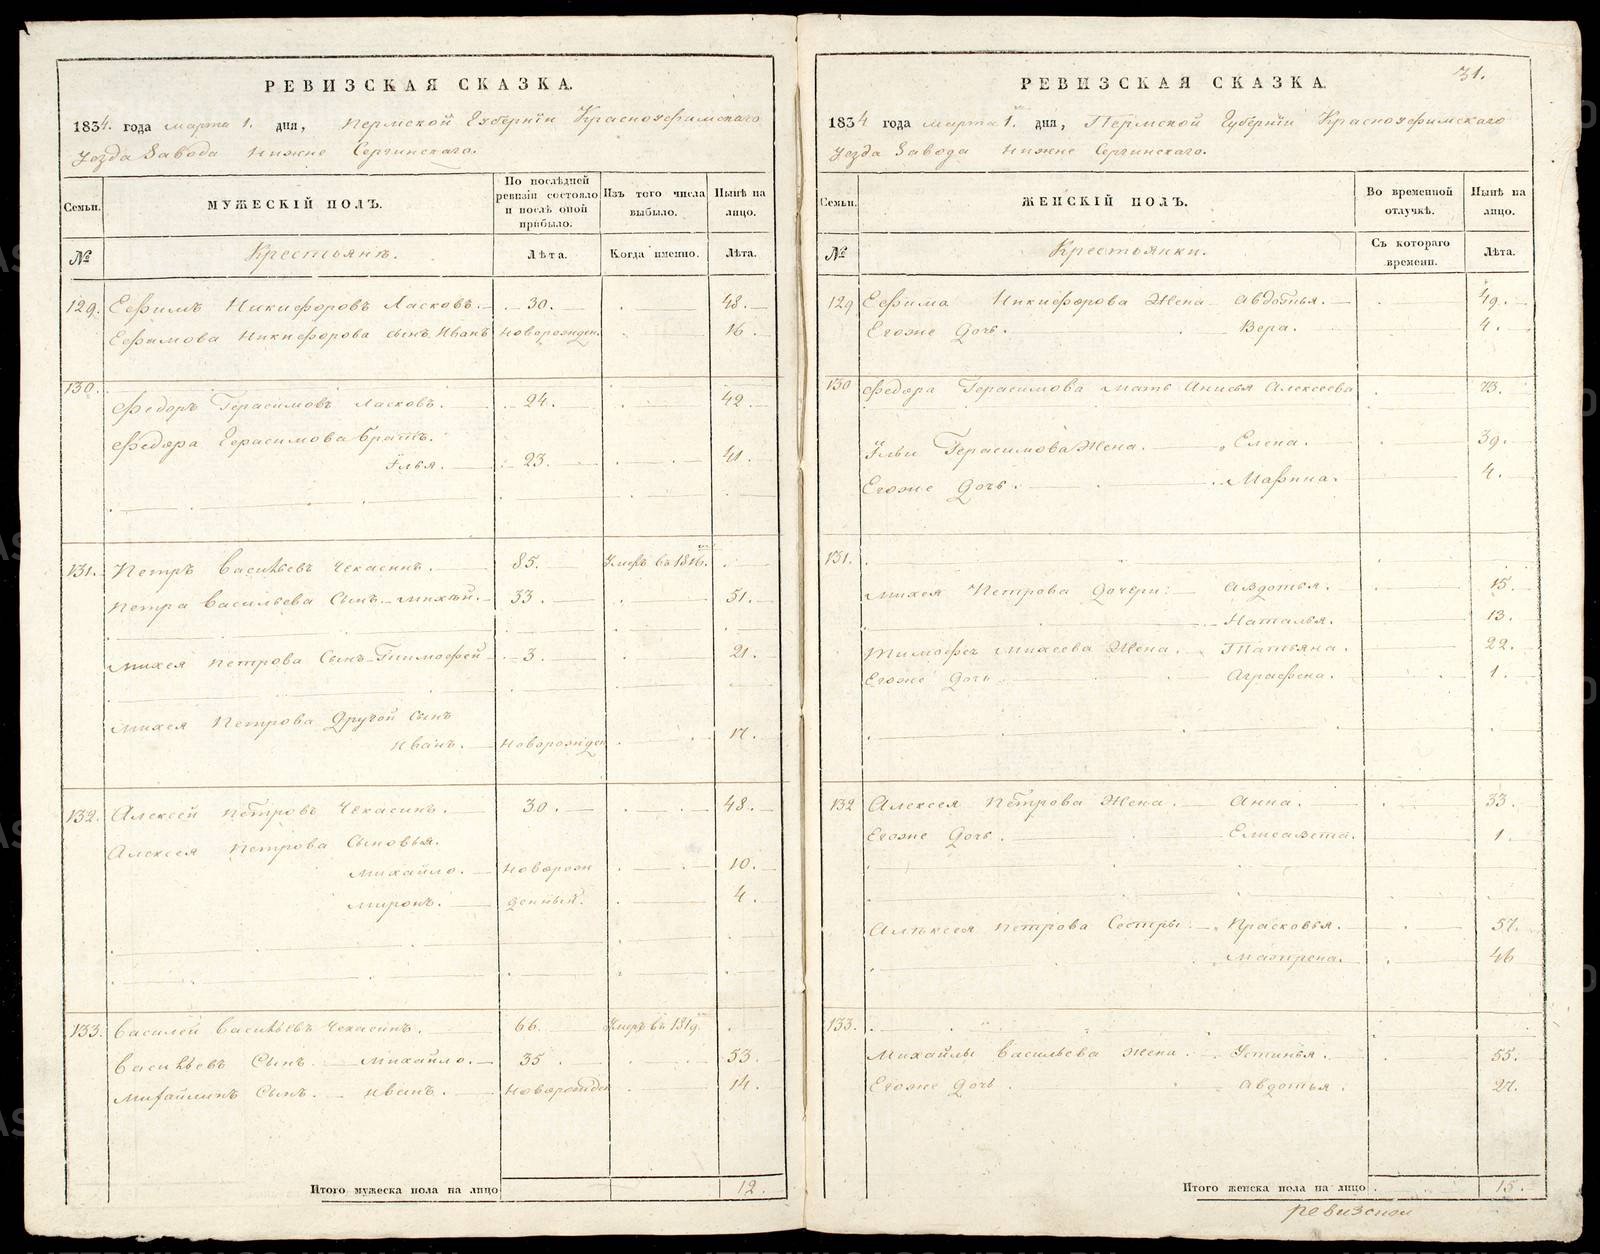 РЕВИЗСКАЯ СКАЗКА.
1834. года марта 1. дня, Пермской Губернiи Красноуфимскаго
Уезда Завода Нижне Сергинскаго.
Семьи. МУЖЕСКIЙ ПОЛЪ. По послѣдней ревизiи состояло и послѣ оной прибыло. Изъ того числа выбыло. Нынѣ на лицо.
№ Крестьянъ. Лѣта. Когда именно. Лѣта.
129. Ефимъ Никифоровъ Ласковъ. 30. 48.
Ефимова Никифорова сынъ Иванъ новорожден. 16.
130. Федоръ Герасимовъ Ласковъ. 24. 42.
Федора Герасимова братъ.
Илья. 23. 41.
131. Петръ Васильевъ Чекасинъ. 85. Умеръ въ 1816.
Петра Васильева Сынъ Михѣй. 33. 51.
Михея Петрова Сынъ Тимофей 3. 21.
Михея Петрова Другой сынъ
Иванъ. Новорожден 17.
132. Алексей Петровъ Чекасинъ. 30. 48.
Алексея Петрова Сыновья.
Михайло. Новорож 10.
Миронъ. денный. 4.
133. Василей Васильевъ Чекасинъ. 66. Умеръ въ 1819.
Васильевъ Сынъ. Михайло. 35 53.
Михайлинъ Сынъ. Иванъ. Новорожден 14.
Итого мужеска пола на лицо 12.
31.
РЕВИЗСКАЯ СКАЗКА.
1834 года марта 1. дня, Пермской Губернiи Красноуфимскаго
Уезда Завода Нижне Сергинскаго.
Семьи. ЖЕНСКIЙ ПОЛЪ. Во временной отлучкѣ. Нынѣ на лицо.
№ Крестьянки. Съ котораго времени. Лѣта.
129 Ефима Никифорова Жена Авдотья. 49.
Егоже Дочь. Вера. 4.
130 Федора Герасимова мать Анисья Алексеева 73.
Ильи Герасимова Жена. Елена. 39.
Егоже Дочь. Марина. 4.
131.
Михея Петрова Дочери: Авдотья. 15.
Наталья. 13.
Тимофея Михеева Жена. Татьяна. 22.
Егоже Дочь Аграфена. 1.
132 Алексея Петрова Жена. Анна. 33.
Егоже Дочь. Елисавета. 1.
Алексея Петрова Сестры: Прасковья. 57.
Мавра
133.
Михайлы Васильева жена. Устинья. 55.
Егоже дочь. Авдотья. 27.
Итого женска пола на лицо. 15.
ревизской